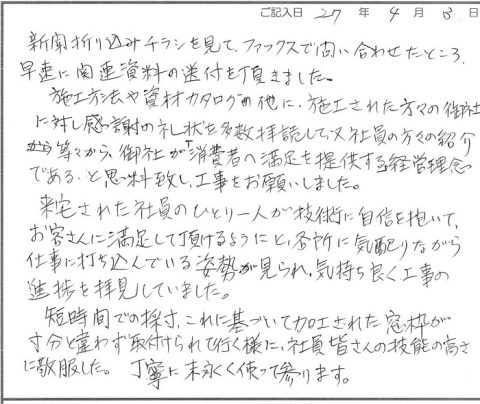 ご記入日 27 年 4 月 3 日
新聞折り込みチラシを見て、ファックスで問い合わせたところ、
早速に関連資料の送付を頂きました。
施工方法や資材カタログの他に、施工された方々の御社
に対し感謝の礼状を多数拝読して、又社員の方々の紹介
から等々から、御社が「消費者へ満足を提供する経営理念
である」と思料致し、工事をお願いしました。
来宅された社員のひとり一人が技術に自信を抱いて、
お客さんに満足して頂けるようにと、各所に気配りながら
仕事に打ち込んでいる姿勢が見られ、気持ち良く工事の
進捗を拝見していました。
短時間での採寸、これに基づいて加工された窓枠が
寸分と違わず取付けられて行く様に、社員皆さんの技能の高さ
に敬服した。丁寧に末永く使って参ります。